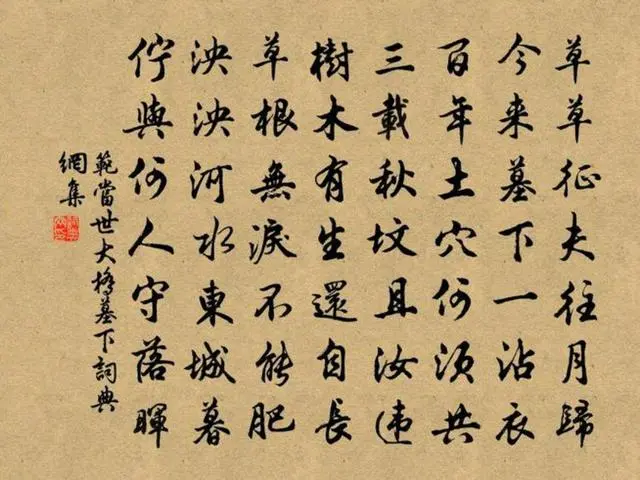 草草征夫往月歸
今来墓下一沾衣
百年土穴何須共
三載秋墳且汝違
樹木有生還自長
草根無淚不能肥
泱泱河水東城暮
佇與何人守落暉
範當世大橋墓下詞典
網集